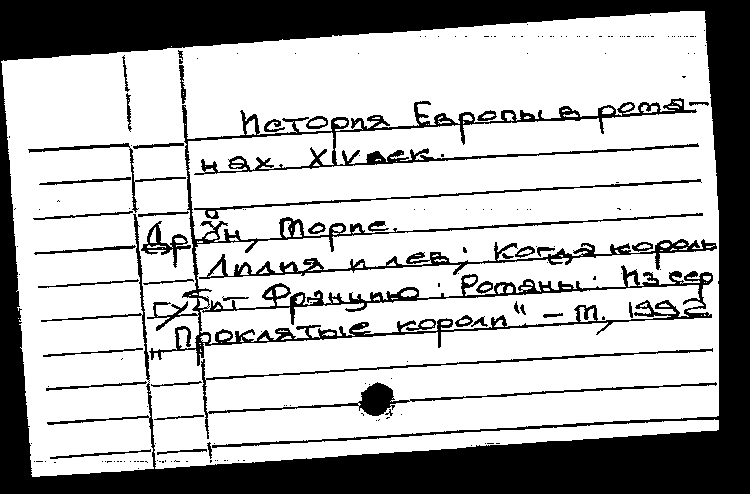 История Европы в рома-
нах. XIV век.
Дрюон, Морис.
Лилия и лев; Когда король
губит Францию: Романы: Из сер
"Проклятые короли". - М, 1992